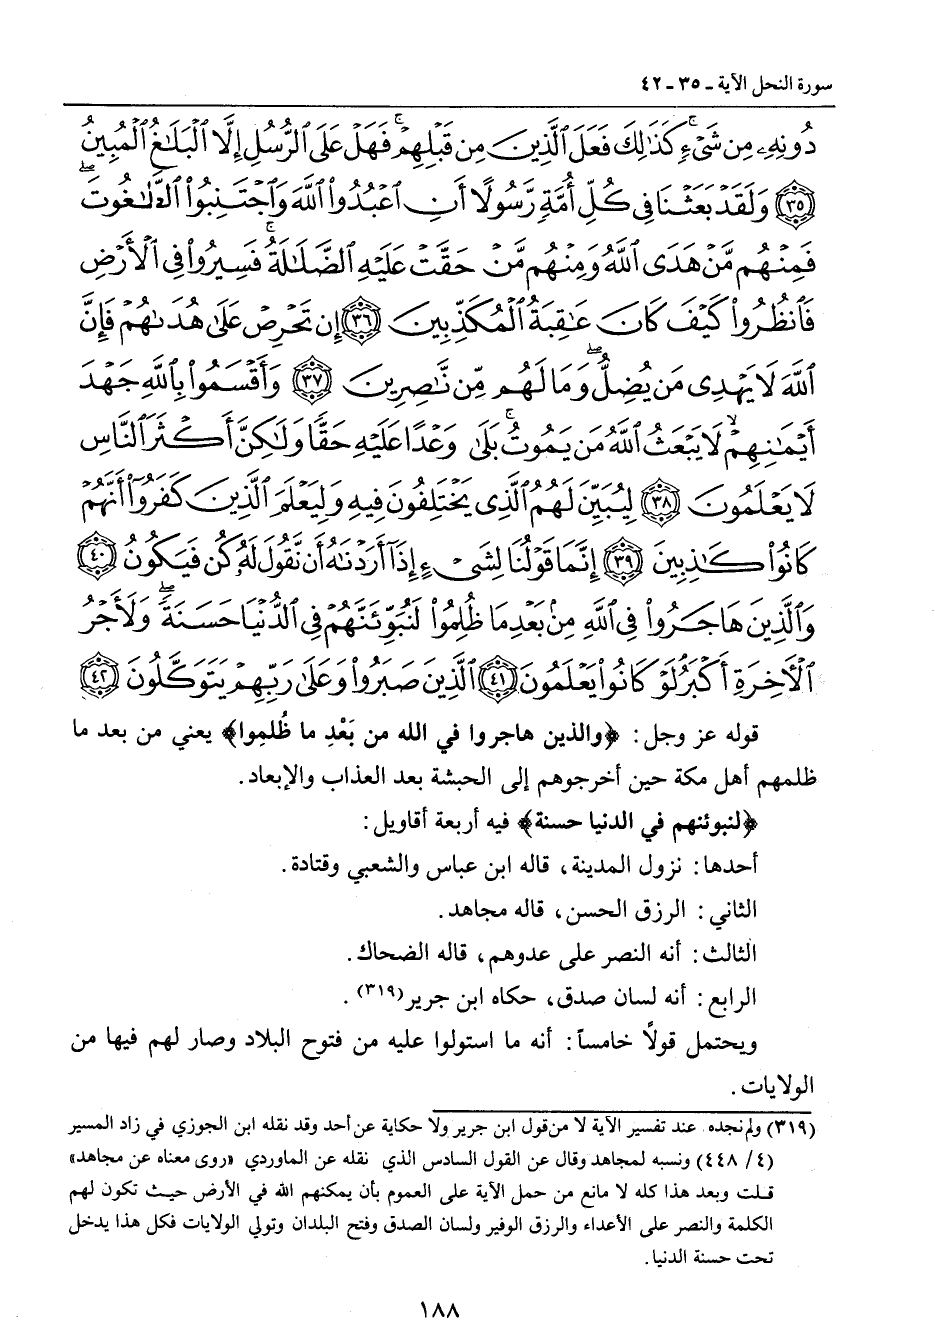 سورة النحل الآية ـ ٣٥ ـ ٤٢
دُونِهِۦ مِن شَىْءٍ ۚ كَذَٰلِكَ فَعَلَ ٱلَّذِينَ مِن قَبْلِهِمْ ۚ فَهَلْ عَلَى ٱلرُّسُلِ إِلَّا ٱلْبَلَٰغُ ٱلْمُبِينُ
٣٥ وَلَقَدْ بَعَثْنَا فِى كُلِّ أُمَّةٍ رَّسُولًا أَنِ ٱعْبُدُوا۟ ٱللَّهَ وَٱجْتَنِبُوا۟ ٱلطَّٰغُوتَ ۖ
فَمِنْهُم مَّنْ هَدَى ٱللَّهُ وَمِنْهُم مَّنْ حَقَّتْ عَلَيْهِ ٱلضَّلَٰلَةُ ۚ فَسِيرُوا۟ فِى ٱلْأَرْضِ
فَٱنظُرُوا۟ كَيْفَ كَانَ عَٰقِبَةُ ٱلْمُكَذِّبِينَ ٣٦ إِن تَحْرِصْ عَلَىٰ هُدَىٰهُمْ فَإِنَّ
ٱللَّهَ لَا يَهْدِى مَن يُضِلُّ ۖ وَمَا لَهُم مِّن نَّٰصِرِينَ ٣٧ وَأَقْسَمُوا۟ بِٱللَّهِ جَهْدَ
أَيْمَٰنِهِمْ ۙ لَا يَبْعَثُ ٱللَّهُ مَن يَمُوتُ ۚ بَلَىٰ وَعْدًا عَلَيْهِ حَقًّا وَلَٰكِنَّ أَكْثَرَ ٱلنَّاسِ
لَا يَعْلَمُونَ ٣٨ لِيُبَيِّنَ لَهُمُ ٱلَّذِى يَخْتَلِفُونَ فِيهِ وَلِيَعْلَمَ ٱلَّذِينَ كَفَرُوٓا۟ أَنَّهُمْ
كَانُوا۟ كَٰذِبِينَ ٣٩ إِنَّمَا قَوْلُنَا لِشَىْءٍ إِذَآ أَرَدْنَٰهُ أَن نَّقُولَ لَهُۥ كُن فَيَكُونُ ٤٠
وَٱلَّذِينَ هَاجَرُوا۟ فِى ٱللَّهِ مِنۢ بَعْدِ مَا ظُلِمُوا۟ لَنُبَوِّئَنَّهُمْ فِى ٱلدُّنْيَا حَسَنَةً ۖ وَلَأَجْرُ
ٱلْأَخِرَةِ أَكْبَرُ لَوْ كَانُوا۟ يَعْلَمُونَ ٤١ ٱلَّذِينَ صَبَرُوا۟ وَعَلَىٰ رَبِّهِمْ يَتَوَكَّلُونَ ٤٢
قوله عز وجل: ﴿والذين هاجروا في الله من بَعْدِ ما ظُلِموا﴾ يعني من بعد ما
ظلمهم أهل مكة حين أخرجوهم إلى الحبشة بعد العذاب والإبعاد.
﴿لنبوئنهم في الدنيا حسنة﴾ فيه أربعة أقاويل:
أحدها: نزول المدينة، قاله ابن عباس والشعبي وقتادة.
الثاني: الرزق الحسن، قاله مجاهد.
الثالث: أنه النصر على عدوهم، قاله الضحاك.
الرابع: أنه لسان صدق، حكاه ابن جرير(٣١٩).
ويحتمل قولًا خامساً: أنه ما استولوا عليه من فتوح البلاد وصار لهم فيها من
الولايات.
(٣١٩) ولم نجده عند تفسير الآية لا من قول ابن جرير ولا حكاية عن أحد وقد نقله ابن الجوزي في زاد المسير
(٤/ ٤٤٨) ونسبه لمجاهد وقال عن القول السادس الذي نقله عن الماوردي «روى معناه عن مجاهد»
قلت وبعد هذا كله لا مانع من حمل الآية على العموم بأن يمكنهم الله في الأرض حيث تكون لهم
الكلمة والنصر على الأعداء والرزق الوفير ولسان الصدق وفتح البلدان وتولي الولايات فكل هذا يدخل
تحت حسنة الدنيا.
١٨٨